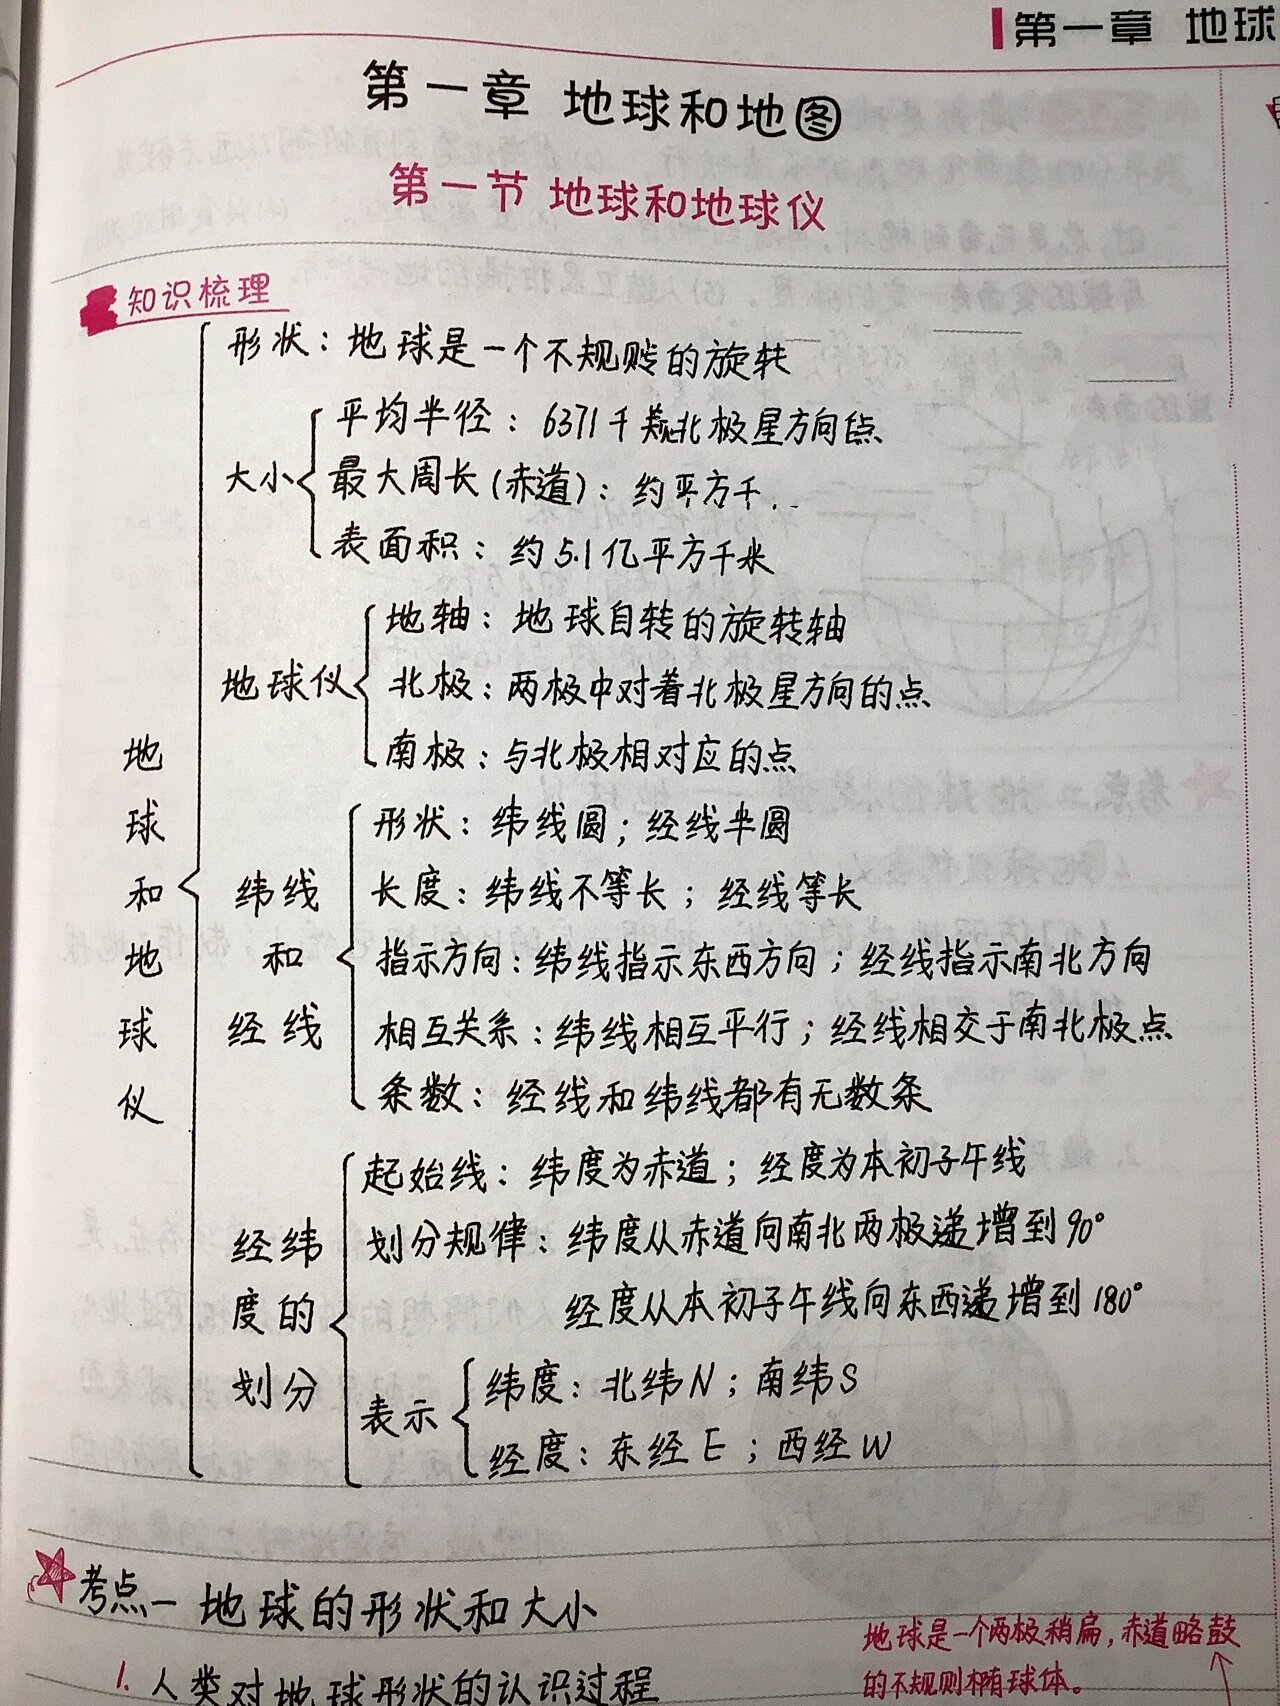 第一章 地球
第一章 地球和地图
第一节 地球和地球仪
知识梳理
地球和地球仪
形状：地球是一个不规的旋转
大小
平均半径：6371千北极星方向点
最大周长(赤道)：约平方千..
表面积：约5.1亿平方千米
地球仪
地轴：地球自转的旋转轴
北极：两极中对着北极星方向的点
南极：与北极相对应的点
纬线和经线
形状：纬线圆；经线半圆
长度：纬线不等长；经线等长
指示方向：纬线指示东西方向；经线指示南北方向
相互关系：纬线相互平行；经线相交于南北极点
条数：经线和纬线都有无数条
经纬度的划分
起始线：纬度为赤道；经度为本初子午线
划分规律：纬度从赤道向南北两极递增到90°
经度从本初子午线向东西递增到180°
表示
纬度：北纬N；南纬S
经度：东经E；西经W
考点一 地球的形状和大小
1. 人类对地球形状的认识过程
地球是一个两极稍扁，赤道略鼓
的不规则椭球体。